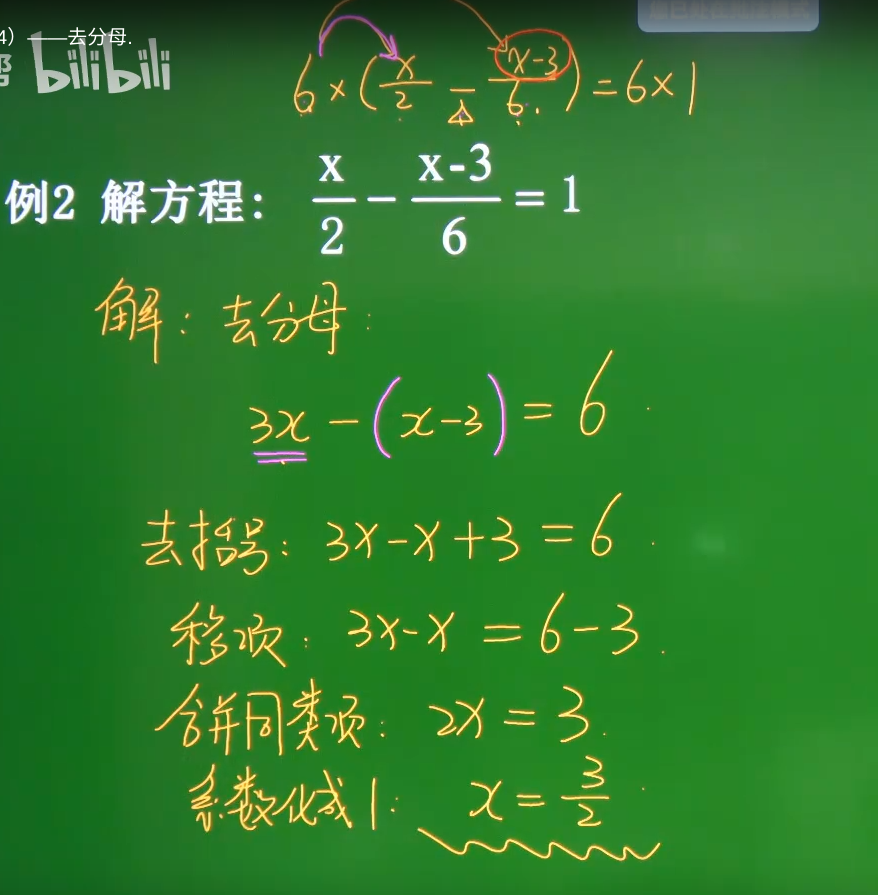 4）——去分母.
bilibili
6×(x/2 - x-3/6.)=6×1
例2 解方程： x/2 - x-3/6 = 1
解：去分母：
3x-(x-3)=6.
去括号：3x-x+3=6.
移项：3x-x=6-3.
合并同类项：2x=3.
系数化成1：x=3/2.